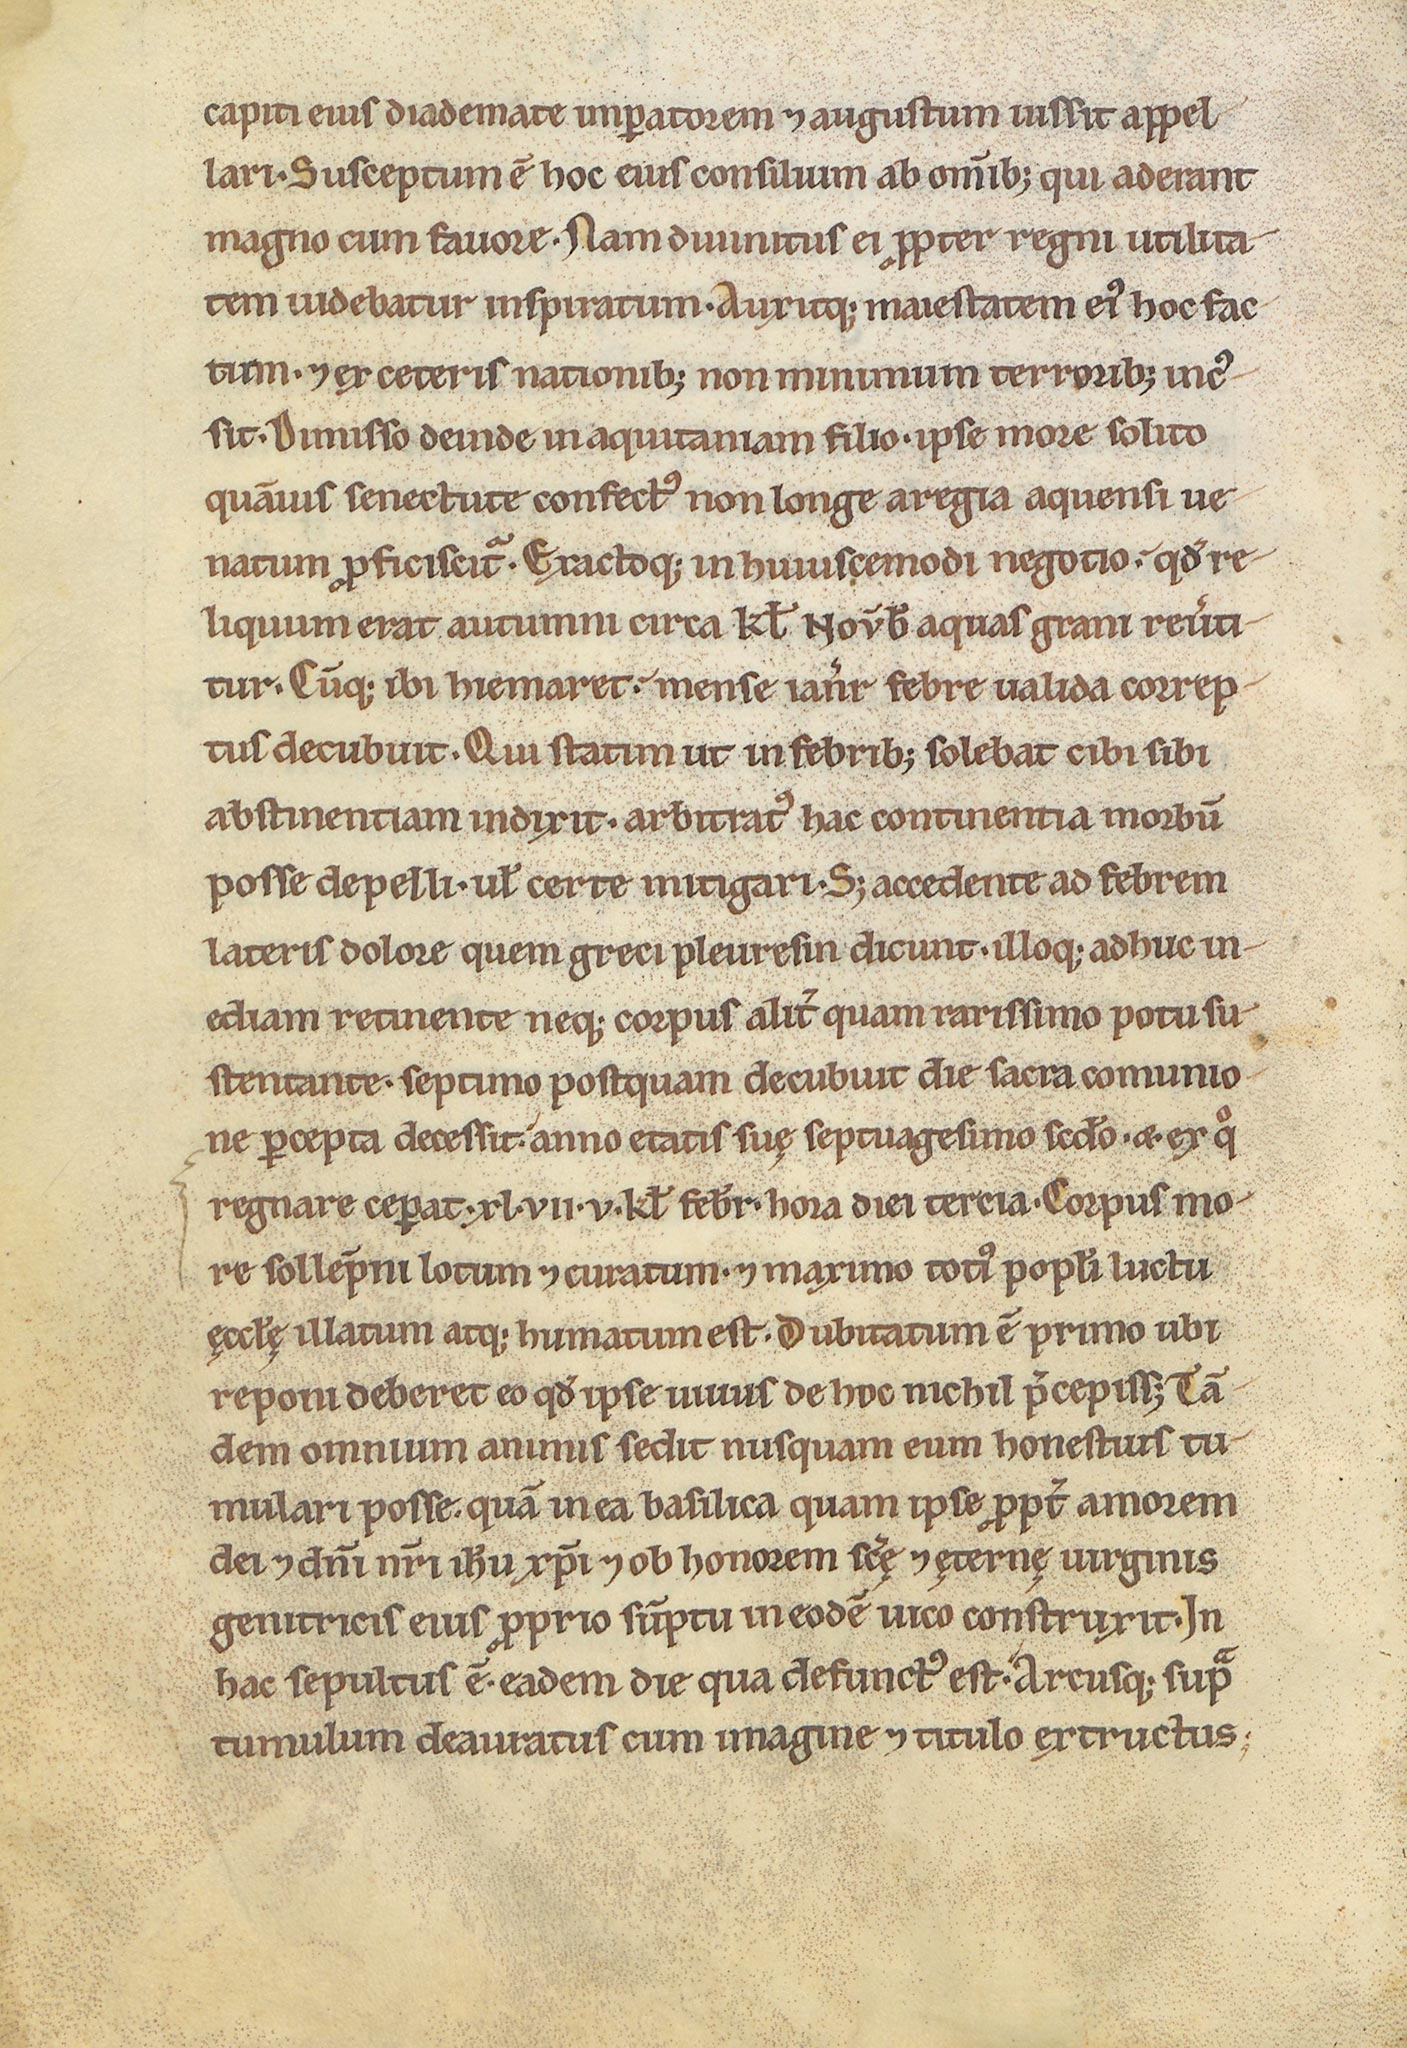 capiti eius diademate imꝑatorem ⁊ augustum iussit appel-
lari. Susceptum ē hoc eius consilium ab om̄ib; qui aderant
magno cum fauore. Nam diuinitus ei ꝓpter regni utilita-
tem uidebatur inspiratum. Auxitq; maiestatem eiꝰ hoc fac-
tum. ⁊ ex ceteris nationib; non minimum terrorib; incꝰ-
sit. Dimisso deinde in aquitaniam filio. ipse more solito
quāuis senectute confectꝰ non longe aregia aquensi ue-
natum ꝓficiscitᷓ. Exactoq; in huiuscemodi negotio. qđ re-
liquum erat autumni circa kƚ Nov̄b aquas grani reu̓ti-
tur. Cūq; ibi hiemaret. mense ian̓r febre ualida correp-
tus decubuit. Qui statim ut in febrib; solebat cibi sibi
abstinentiam indixit. arbitratꝰ hac continentia morbū
posse depelli. uƚ certe mitigari. S; accedente ad febrem
lateris dolore quem greci pleuresin dicunt. illoq; adhuc in-
ediam retinente neq; corpus alit̓ quam rarissimo potu su-
stentante. septimo postquam decubuit die sacra comunio-
ne ꝑcepta decessit. anno etatis suę septuagesimo scđo. æ. ex qͦ
regnare ceꝑat. xl. vii. v. kƚ feb̄r. hora diei tercia. Corpus mo-
re sollēpni lotum ⁊ curatum. ⁊ maximo totiꝰ popƚi luctu
ęccƚę illatum atq; humatum est. Dubitatum ē primo ubi
reponi deberet eo qđ ipse uiuus de hoc nichil p̄cepiss; Tā-
dem omnium animis sedit nusquam eum honestius tu-
mulari posse. quā in ea basilica quam ipse ꝓpt̓ amorem
dei ⁊ dn̄i nr̄i ih̄u xp̄i ⁊ ob honorem sc̄ę ⁊ ęternę uirginis
genitricis eius ꝓprio sūptu in eodē uico construxit. In
hac sepultus ē. eadem die qua defunctꝰ est. Arcusq; supᷓ
tumulum deauratus cum imagine ⁊ titulo extructus;